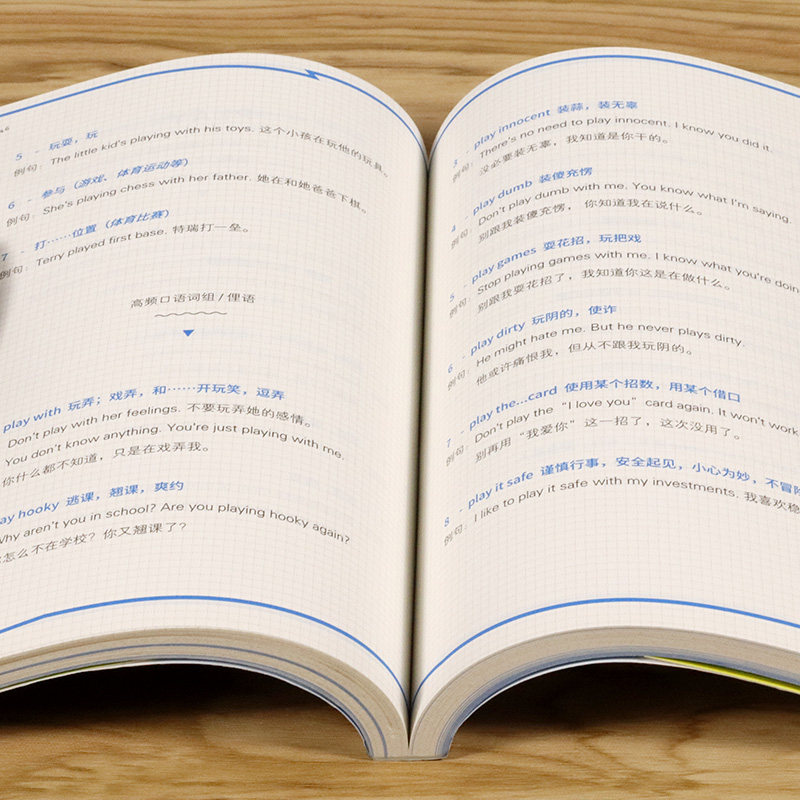 5 - 玩耍，玩
例句：The little kid's playing with his toys. 这个小孩在玩他的玩具。
6 - 参与（游戏、体育运动等）
例句：She's playing chess with her father. 她在和她爸爸下棋。
7 - 打……位置（体育比赛）
例句：Terry played first base. 特瑞打一垒。
高频口语词组 / 俚语
play with 玩弄；戏弄，和……开玩笑，逗弄
Don't play with her feelings. 不要玩弄她的感情。
You don't know anything. You're just playing with me.
你什么都不知道，只是在戏弄我。
ay hooky 逃课，翘课，爽约
Why aren't you in school? Are you playing hooky again?
怎么不在学校？你又翘课了？
3 - play innocent 装蒜，装无辜
例句：There's no need to play innocent. I know you did it.
没必要装无辜，我知道是你干的。
4 - play dumb 装傻充愣
例句：Don't play dumb with me. You know what I'm saying.
别跟我装傻充愣，你知道我在说什么。
5 - play games 耍花招，玩把戏
例句：Stop playing games with me. I know what you're doin
别跟我耍花招了，我知道你这是在做什么。
6 - play dirty 玩阴的，使诈
例句：He might hate me. But he never plays dirty.
他或许痛恨我，但从不跟我玩阴的。
7 - play the...card 使用某个招数，用某个借口
例句：Don't play the “I love you” card again. It won't work
别再用“我爱你”这一招了，这次没用了。
8 - play it safe 谨慎行事，安全起见，小心为妙，不冒险
例句：I like to play it safe with my investments. 我喜欢稳